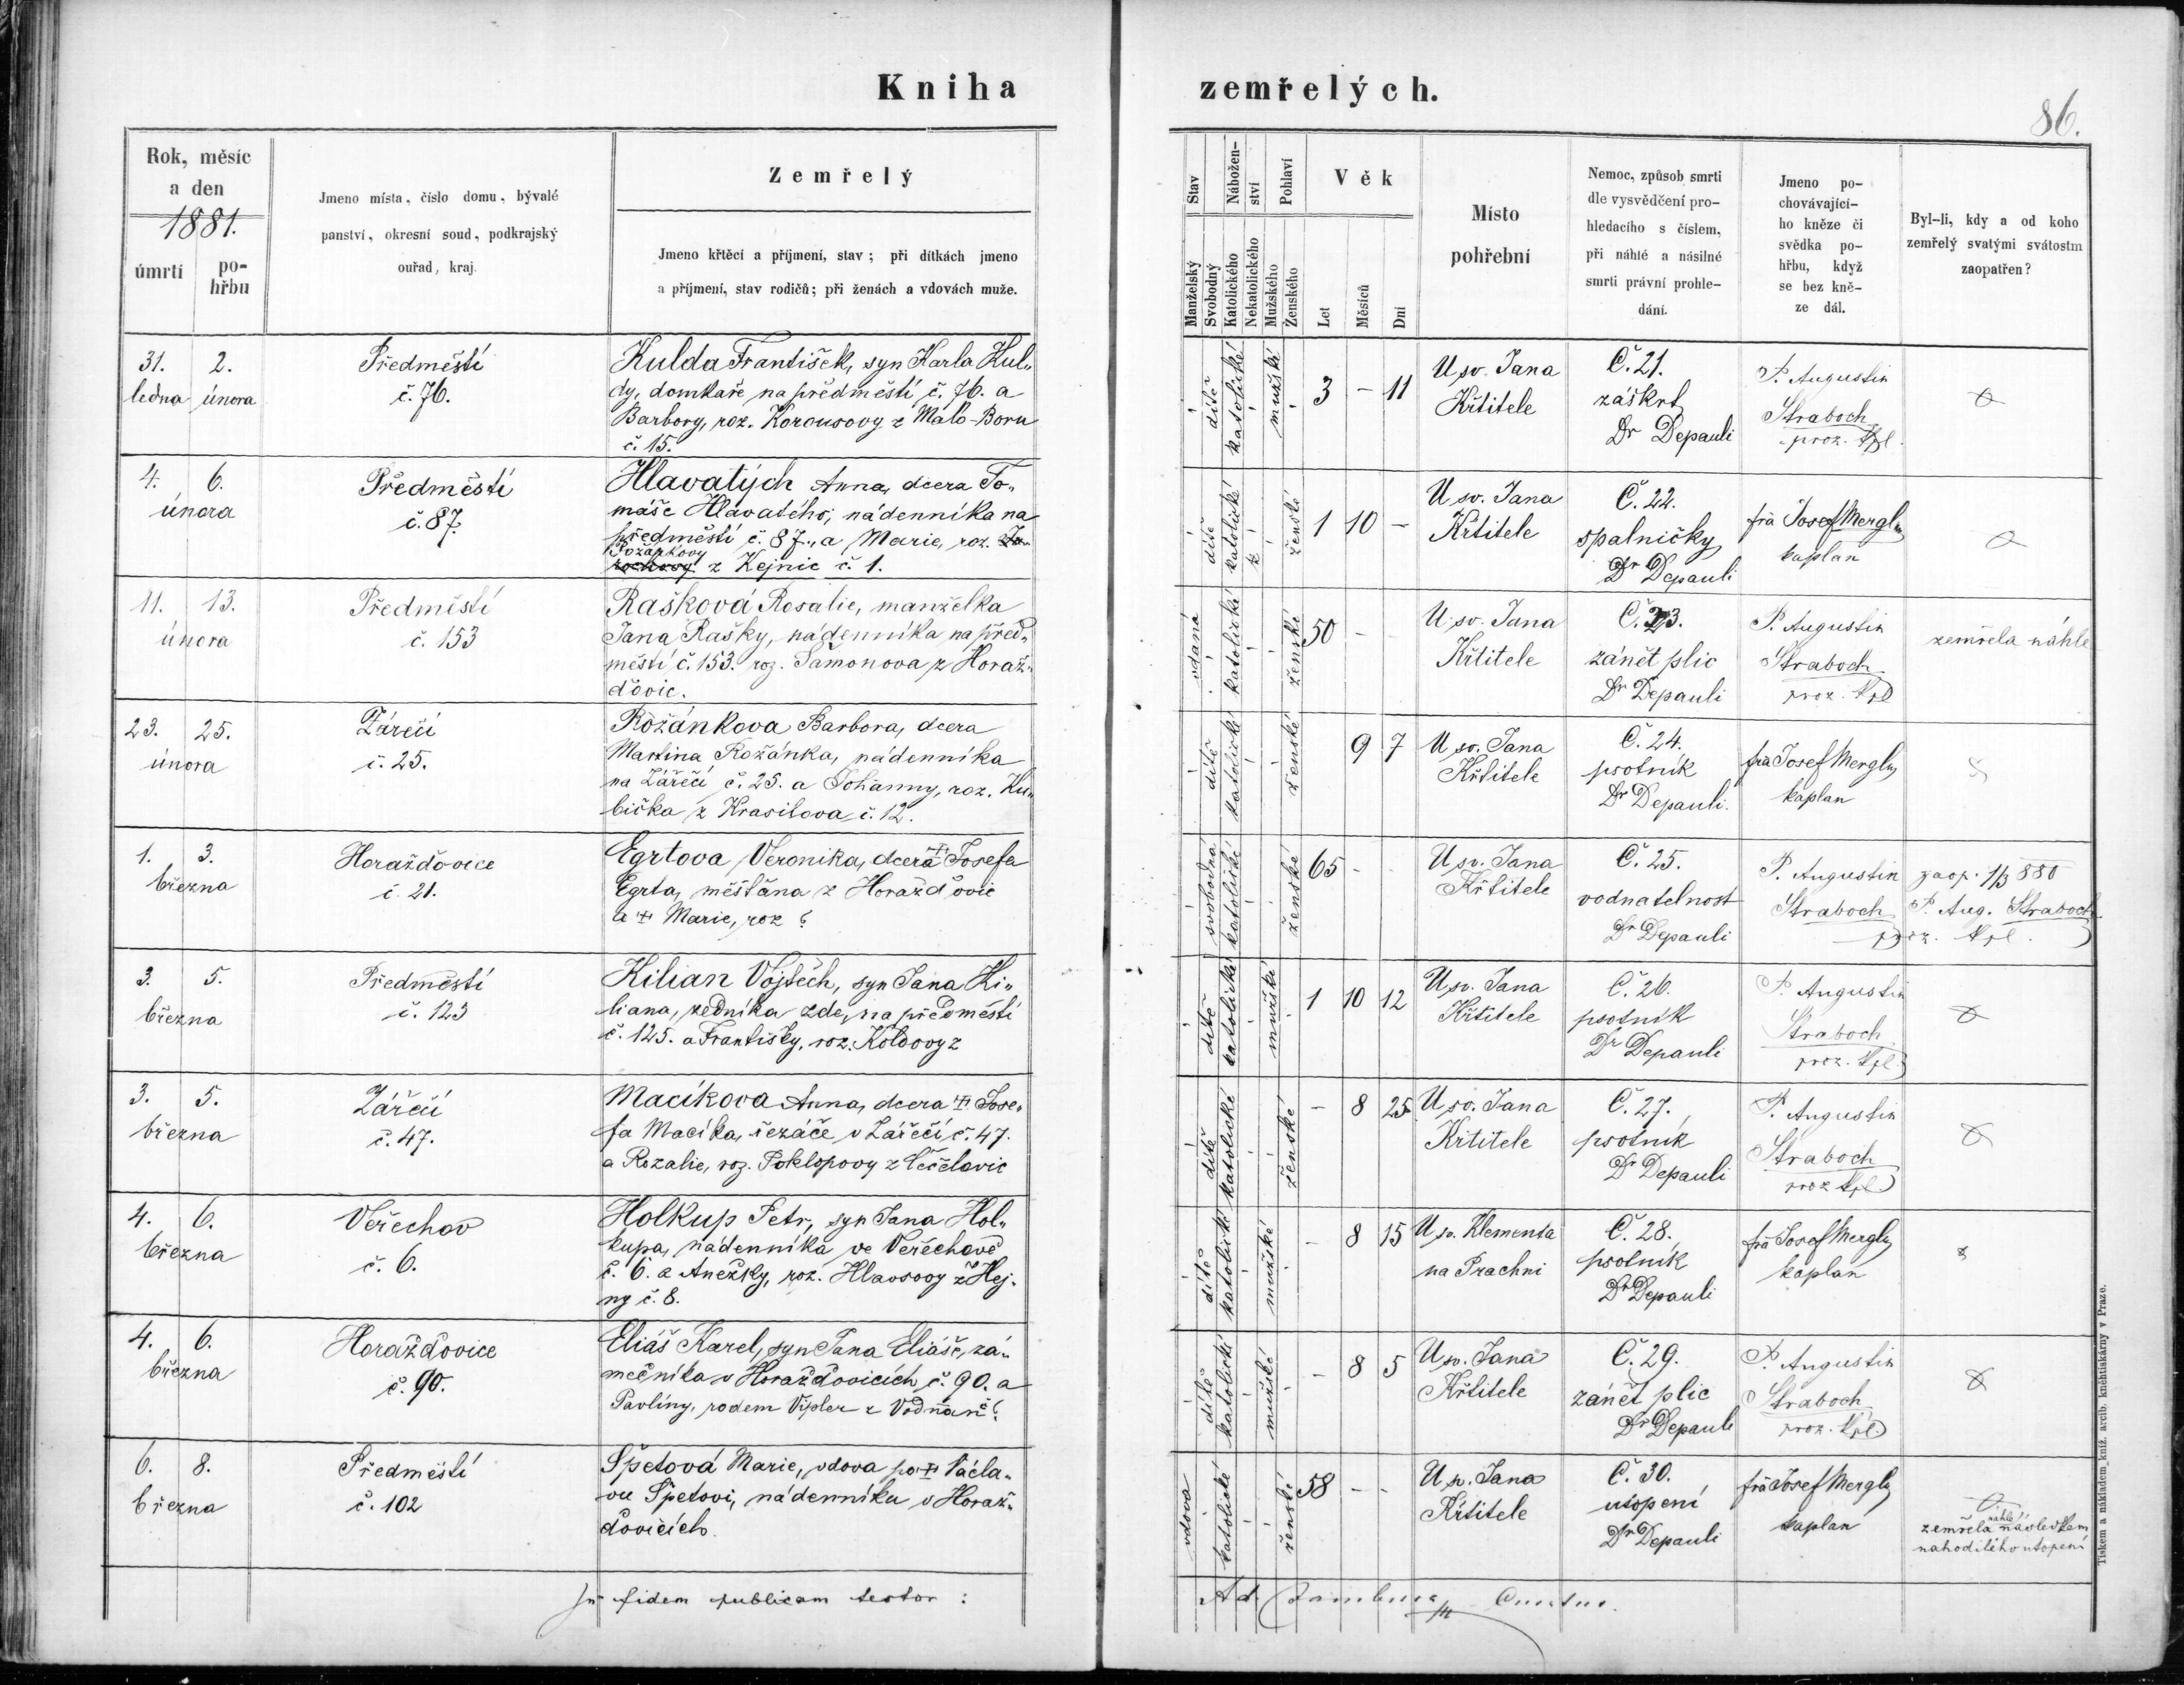 Kniha zemřelých.
86.
Rok, měsíc
a den
1881.
úmrtí
po-
hřbu
Jmeno místa, číslo domu, bývalé
panství, okresní soud, podkrajský
ouřad, kraj.
Zemřelý
Jmeno křtěcí a příjmení, stav; při dítkách jmeno
a příjmení, stav rodičů; při ženách a vdovách muže.
Stav
Manželský
Svobodný
Nábožen-
ství
Katolického
Nekatolického
Pohlaví
Mužského
Ženského
Věk
Let
Měsíců
Dní
Místo
pohřební
Nemoc, způsob smrti
dle vysvědčení pro-
hledacího s číslem,
při náhlé a násilné
smrti právní prohle-
dání.
Jmeno po-
chovávající-
ho kněze či
svědka po-
hřbu, když
se bez kně-
ze dál.
Byl-li, kdy a od koho
zemřelý svatými svátostm
zaopatřen?
31. 2.
ledna února
Předměstí
č. 76.
Kulda František, syn Karla Kul„
dy, domkaře na předměstí č. 76. a
Barbory, roz. Korousovy z Malo-Boru
č. 15.
dítě katolické mužské
3 - 11
U sv. Jana
Křtitele
Č. 21.
záškrt
Dr Depauli
P. Augustin
Straboch
proz. kpl.
4. 6.
února
Předměstí
č. 87.
Hlavatých Anna, dcera To„
máše Hlavatého, nádenníka na
předměstí č. 87., a Marie, roz.
Požárkovy
z Kejnic č. 1.
dítě katolické ženské
1 10 -
U sv. Jana
Křtitele
Č. 22.
spalničky
Dr Depauli
fra Josef Mergl
kaplan
11. 13.
února
Předměstí
č. 153
Rašková Rosalie, manželka
Jana Rašky, nádenníka na před„
městí č. 153. roz. Šamonova z Horaž„
ďovic.
vdaná katolické ženské
50 - -
U sv. Jana
Křtitele
Č. 23.
zánět plic
Dr Depauli
P. Augustin
Straboch
proz. kpl
zemřela náhle
23. 25.
února
Zářečí
č. 25.
Rožánkova Barbora, dcera
Martina Rožánka, nádenníka
na Zářečí č. 25. a Johanny, roz. Ku„
bička z Krasilova č. 12.
dítě katolické ženské
9 7
U sv. Jana
Křtitele
Č. 24.
psotník
Dr Depauli.
fra Josef Mergl
kaplan
1. 3.
března
Horažďovice
č. 21.
Egrtova Veronika, dcera † Josefa
Egrta, měšťana z Horažďovic
a † Marie, roz ?
svobodná katolické ženské
65 - -
U sv. Jana
Křtitele
Č. 25.
vodnatelnost
Dr Depauli
P. Augustin
Straboch
proz. kpl.
zaop. 1/3 880
P. Aug. Straboch
3. 5.
března
Předměstí
č. 123
Kilian Vojtěch, syn Jana Ki„
liana, zedníka zde, na předměstí
č. 125. a Františky, roz. Koldovy z
dítě katolické mužské
1 10 12
U sv. Jana
Křtitele
Č. 26.
psotník
Dr Depauli
P. Augustin
Straboch
proz. kpl.
3. 5.
března
Zářečí
č. 47.
Macíkova Anna, dcera † Jose„
fa Macíka, řezáče v Zářečí č. 47.
a Rozalie, roz. Poklopovy z Čečelovic
dítě katolické ženské
- 8 25
U sv. Jana
Křtitele
Č. 27.
psotník
Dr Depauli
P. Augustin
Straboch
proz kpl
4. 6.
března
Veřechov
č. 6.
Holkup Petr, syn Jana Hol„
kupa, nádenníka ve Veřechově
č. 6. a Anežky, roz. Hlavsovy z Hej„
ny č. 8.
dítě katolické mužské
- 8 15
U sv. Klementa
na Prachni
Č. 28.
psotník
Dr Depauli
fra Josef Mergl
kaplan
4. 6.
března
Horažďovice
č. 90.
Eliáš Karel, syn Jana Eliáše, zá„
mečníka v Horažďovicích č. 90. a
Pavlíny, rodem Vipler z Vodňan č?
dítě katolické mužské
- 8 5
U sv. Jana
Křtitele
Č. 29.
zánět plic
Dr Depauli
P. Augustin
Straboch
proz. kpl.
6. 8.
března
Předměstí
č. 102
Špetová Marie, vdova po † Václa„
vu Špetovi, nádenníku v Horaž„
ďovicích.
vdova katolické ženské
58 - -
U sv. Jana
Křtitele
Č. 30.
utopení
Dr Depauli
fra Josef Mergl
kaplan
náhle
zemřela následkem
nahodilého utopení
In fidem publicam testor :
Tiskem a nákladem kníž. arcib. kněhtiskárny v Praze.